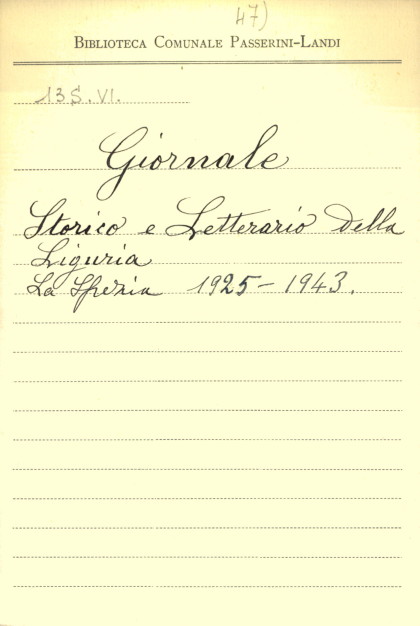 47)
BIBLIOTECA COMUNALE PASSERINI-LANDI
13S.VI.
Giornale
Storico e Letterario della
Liguria
La Spezia 1925-1943.